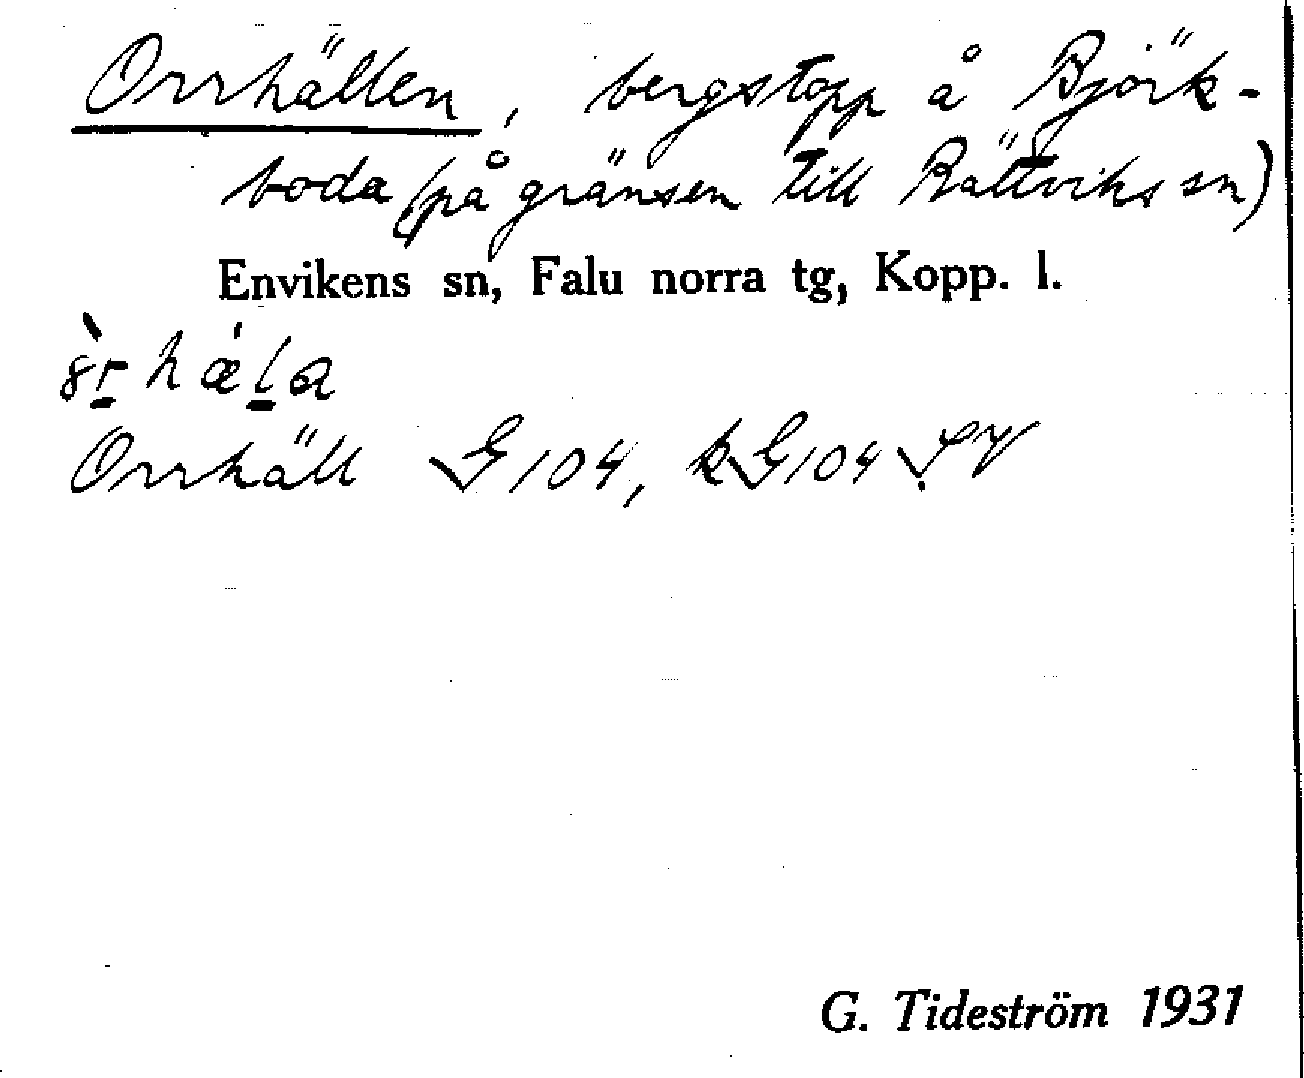 Orrhällen, bergstopp å Björk-
boda (på gränsen till Rättviks sn)
Envikens sn, Falu norra tg, Kopp. l.
Orrhäll G 104, kG 104 SV
G. Tideström 1931